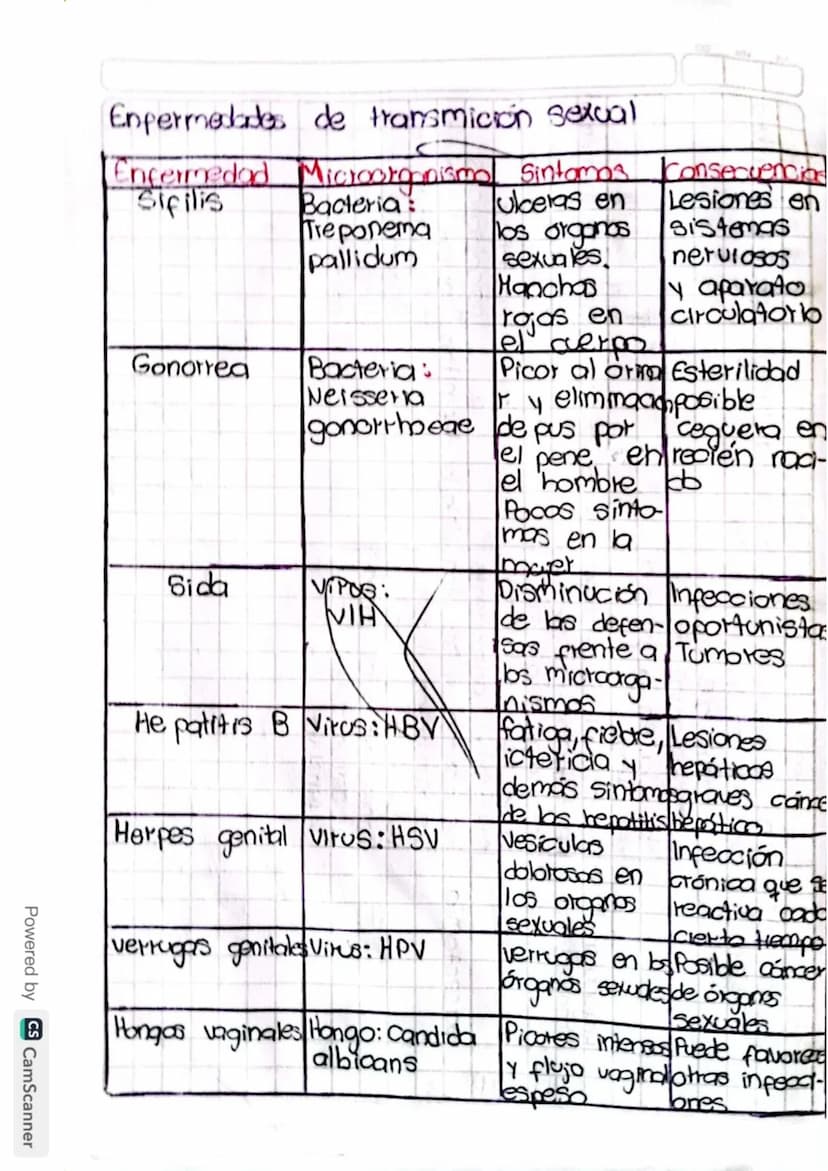 Enfermedades de transmición sexual
Enfermedad Microorganismo Sintomas Consecuencias
Sifilis
Bacteria:
Treponema
pallidum
ulceras en
los organos
sexuales.
Manchas
rojas en
el cuerpo
Lesiones en
sistemas
nerviosos
y aparato
circulatorio
Gonorrea
Bacteria:
Neisseria
gonorrhoeae
Picor al orina
r y eliminación
de pus por
el pene en
el hombre
Pocos sinto-
mas en la
mujer
Esterilidad
posible
ceguera en
recién naci-
do
Sida
Virus:
VIH
Disminución
de las defen-
sas frente a
los microorga-
nismos
Infecciones
oportunistas
Tumores
Hepatitis B
Virus: HBV
fatiga, fiebre,
ictericia y
demás sintomas
de las hepatitis
Lesiones
hepáticas
graves cánce
hepático
Herpes genital
Virus: HSV
Vesiculas
dolorosas en
los organos
sexuales
Infección
crónica que se
reactiva cada
cierto tiempo
verrugas genitales
Virus: HPV
verrugas en los
órganos sexuales
Posible cáncer
de órganos
sexuales
Hongos vaginales
Hongo: Candida
albicans
Picores intensos
y flujo vaginal
espeso
Puede favorecer
otras infecci-
ones
Powered by CS CamScanner